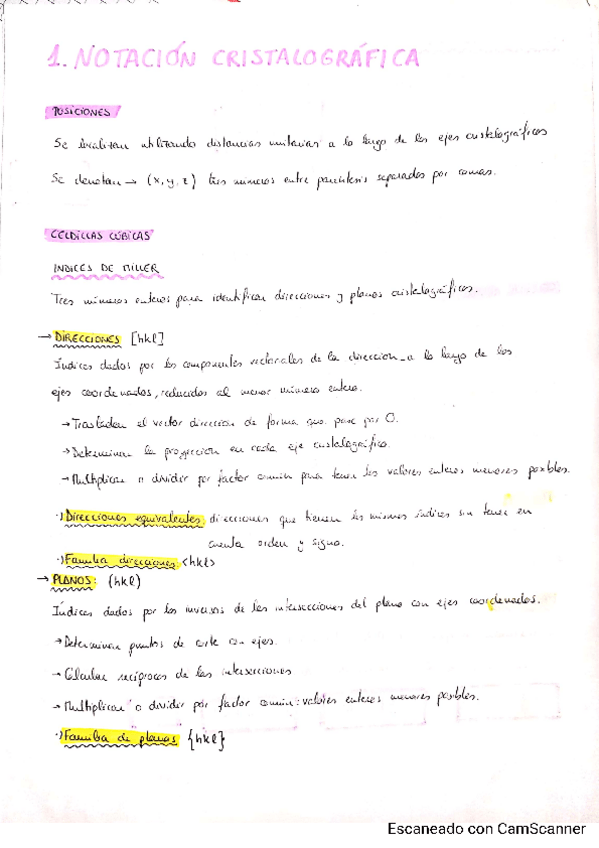 1. NOTACIÓN CRISTALOGRÁFICA
POSICIONES
Se localizan utilizando distancias unitarias a lo largo de los ejes cristalográficos
Se denotan → (x, y, z) tres números entre paréntesis separados por comas.
CELDILLAS CÚBICAS
INDICES DE MILLER
Tres números enteros para identificar direcciones y planos cristalográficos.
→ DIRECCIONES [hkl]
Índices dados por los componentes vectoriales de la dirección a lo largo de los
ejes coordenados, reducidos al menor número entero.
→ Trasladar el vector dirección de forma que pase por O.
→ Determinar la proyección en cada eje cristalográfico.
→ Multiplicar o dividir por factor común para tener los valores enteros menores posibles.
·) Direcciones equivalentes: direcciones que tienen los mismos índices sin tener en
cuenta orden y signo.
·) Familia direcciones: <hkl>
→ PLANOS: (hkl)
Índices dados por los inversos de las intersecciones del plano con ejes coordenados.
→ Determinar puntos de corte con ejes.
→ Calcular recíprocos de las intersecciones
→ Multiplicar o dividir por factor común: valores enteros menores posibles.
·) Familia de planos {hkl}
Escaneado con CamScanner